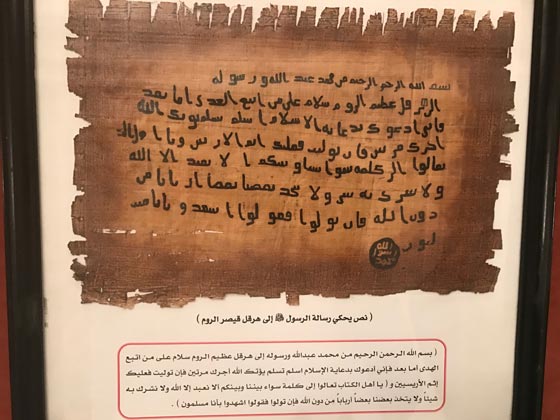 بسم الله الرحمن الرحيم من محمد عبد الله ورسوله
الى هرقل عظيم الروم سلام على من اتبع الهدى اما بعد
فاني ادعوك بدعاية الاسلام اسلم تسلم يوتك الله
اجرك مرتين فان توليت فعليك اثم الاريسين ويا اهل
تعالوا الى كلمة سوا بيننا وبينكم الا نعبد الا الله
ولا نشرك به شيا ولا يتخذ بعضنا بعضا اربابا من
دون الله فان تولوا فقولوا اشهدوا بانا مس
لمون
الله
رسول
محمد
( نص يحكي رسالة الرسول ﷺ إلى هرقل قيصر الروم )
( بسم الله الرحمن الرحيم من محمد عبدالله ورسوله إلى هرقل عظيم الروم سلام على من اتبع
الهدى اما بعد فإني أدعوك بدعاية الإسلام اسلم تسلم يؤتك الله اجرك مرتين فإن توليت فعليك
إثم الأريسيين و ( يا أهل الكتاب تعالوا إلى كلمة سواء بيننا وبينكم ألا نعبد إلا الله ولا نشرك به
شيئاً ولا يتخذ بعضنا بعضاً أرباباً من دون الله فإن تولوا فقولوا اشهدوا بأنا مسلمون ) .